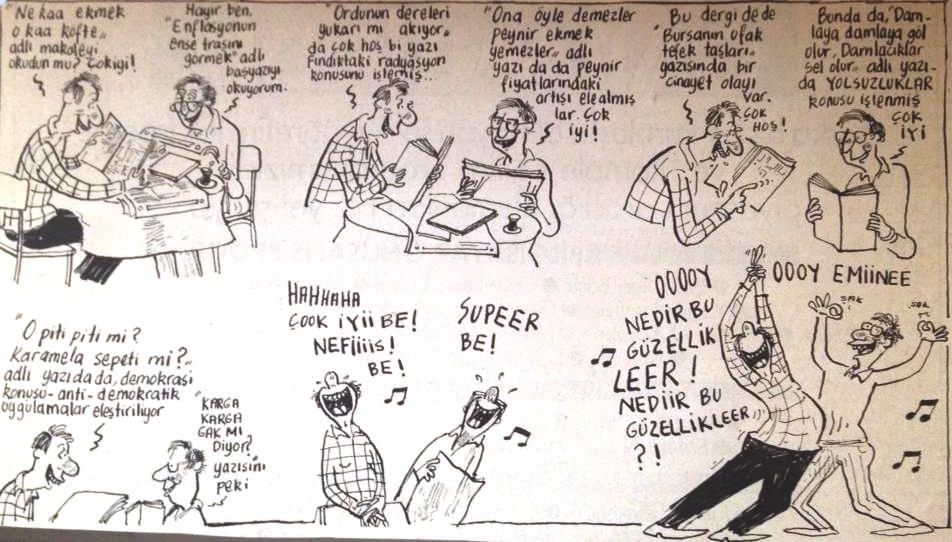 "Ne kaa ekmek
o kaa köfte„
adlı makaleyi
okudun mu? Çok iyi!
Hayır ben,
"Enflasyonun
Ense traşını
görmek" adlı
başyazıyı
okuyorum.
"Ordunun dereleri
yukarı mı akıyor„
da çok hoş bi yazı
Fındıktaki radyasyon
konusunu işlemiş...
"Ona öyle demezler
peynir ekmek
yemezler„ adlı
yazı da da peynir
fiyatlarındaki
artışı elealmış
lar. Çok
iyi!
Bu dergi de de
"Bursanın ufak
tefek taşları„
yazısında bir
cinayet olayı
var.
ÇOK
HOŞ!
Bunda da, "Dam-
laya damlaya göl
olur, Damlacıklar
sel olur„ adlı yazı-
da YOLSUZLUKLAR
konusu işlenmiş
ÇOK
İYİ
"O piti piti mi?
Karamela sepeti mi?„
adlı yazıda da, demokrasi
konusu-anti-demokratik
uygulamalar eleştiriliyor
"KARGA
KARGA
GAK MI
Diyor?
yazısını
peki
HAHHAHA
ÇOOK İYİİ BE!
NEFİİİS!
BE!
SUPEER
BE!
OOOOY
NEDİR BU
GÜZELLİK
LEER!
NEDİİR BU
GÜZELLİKLEER
?!
OOOY EMİİNEE
ŞAK
ŞAK